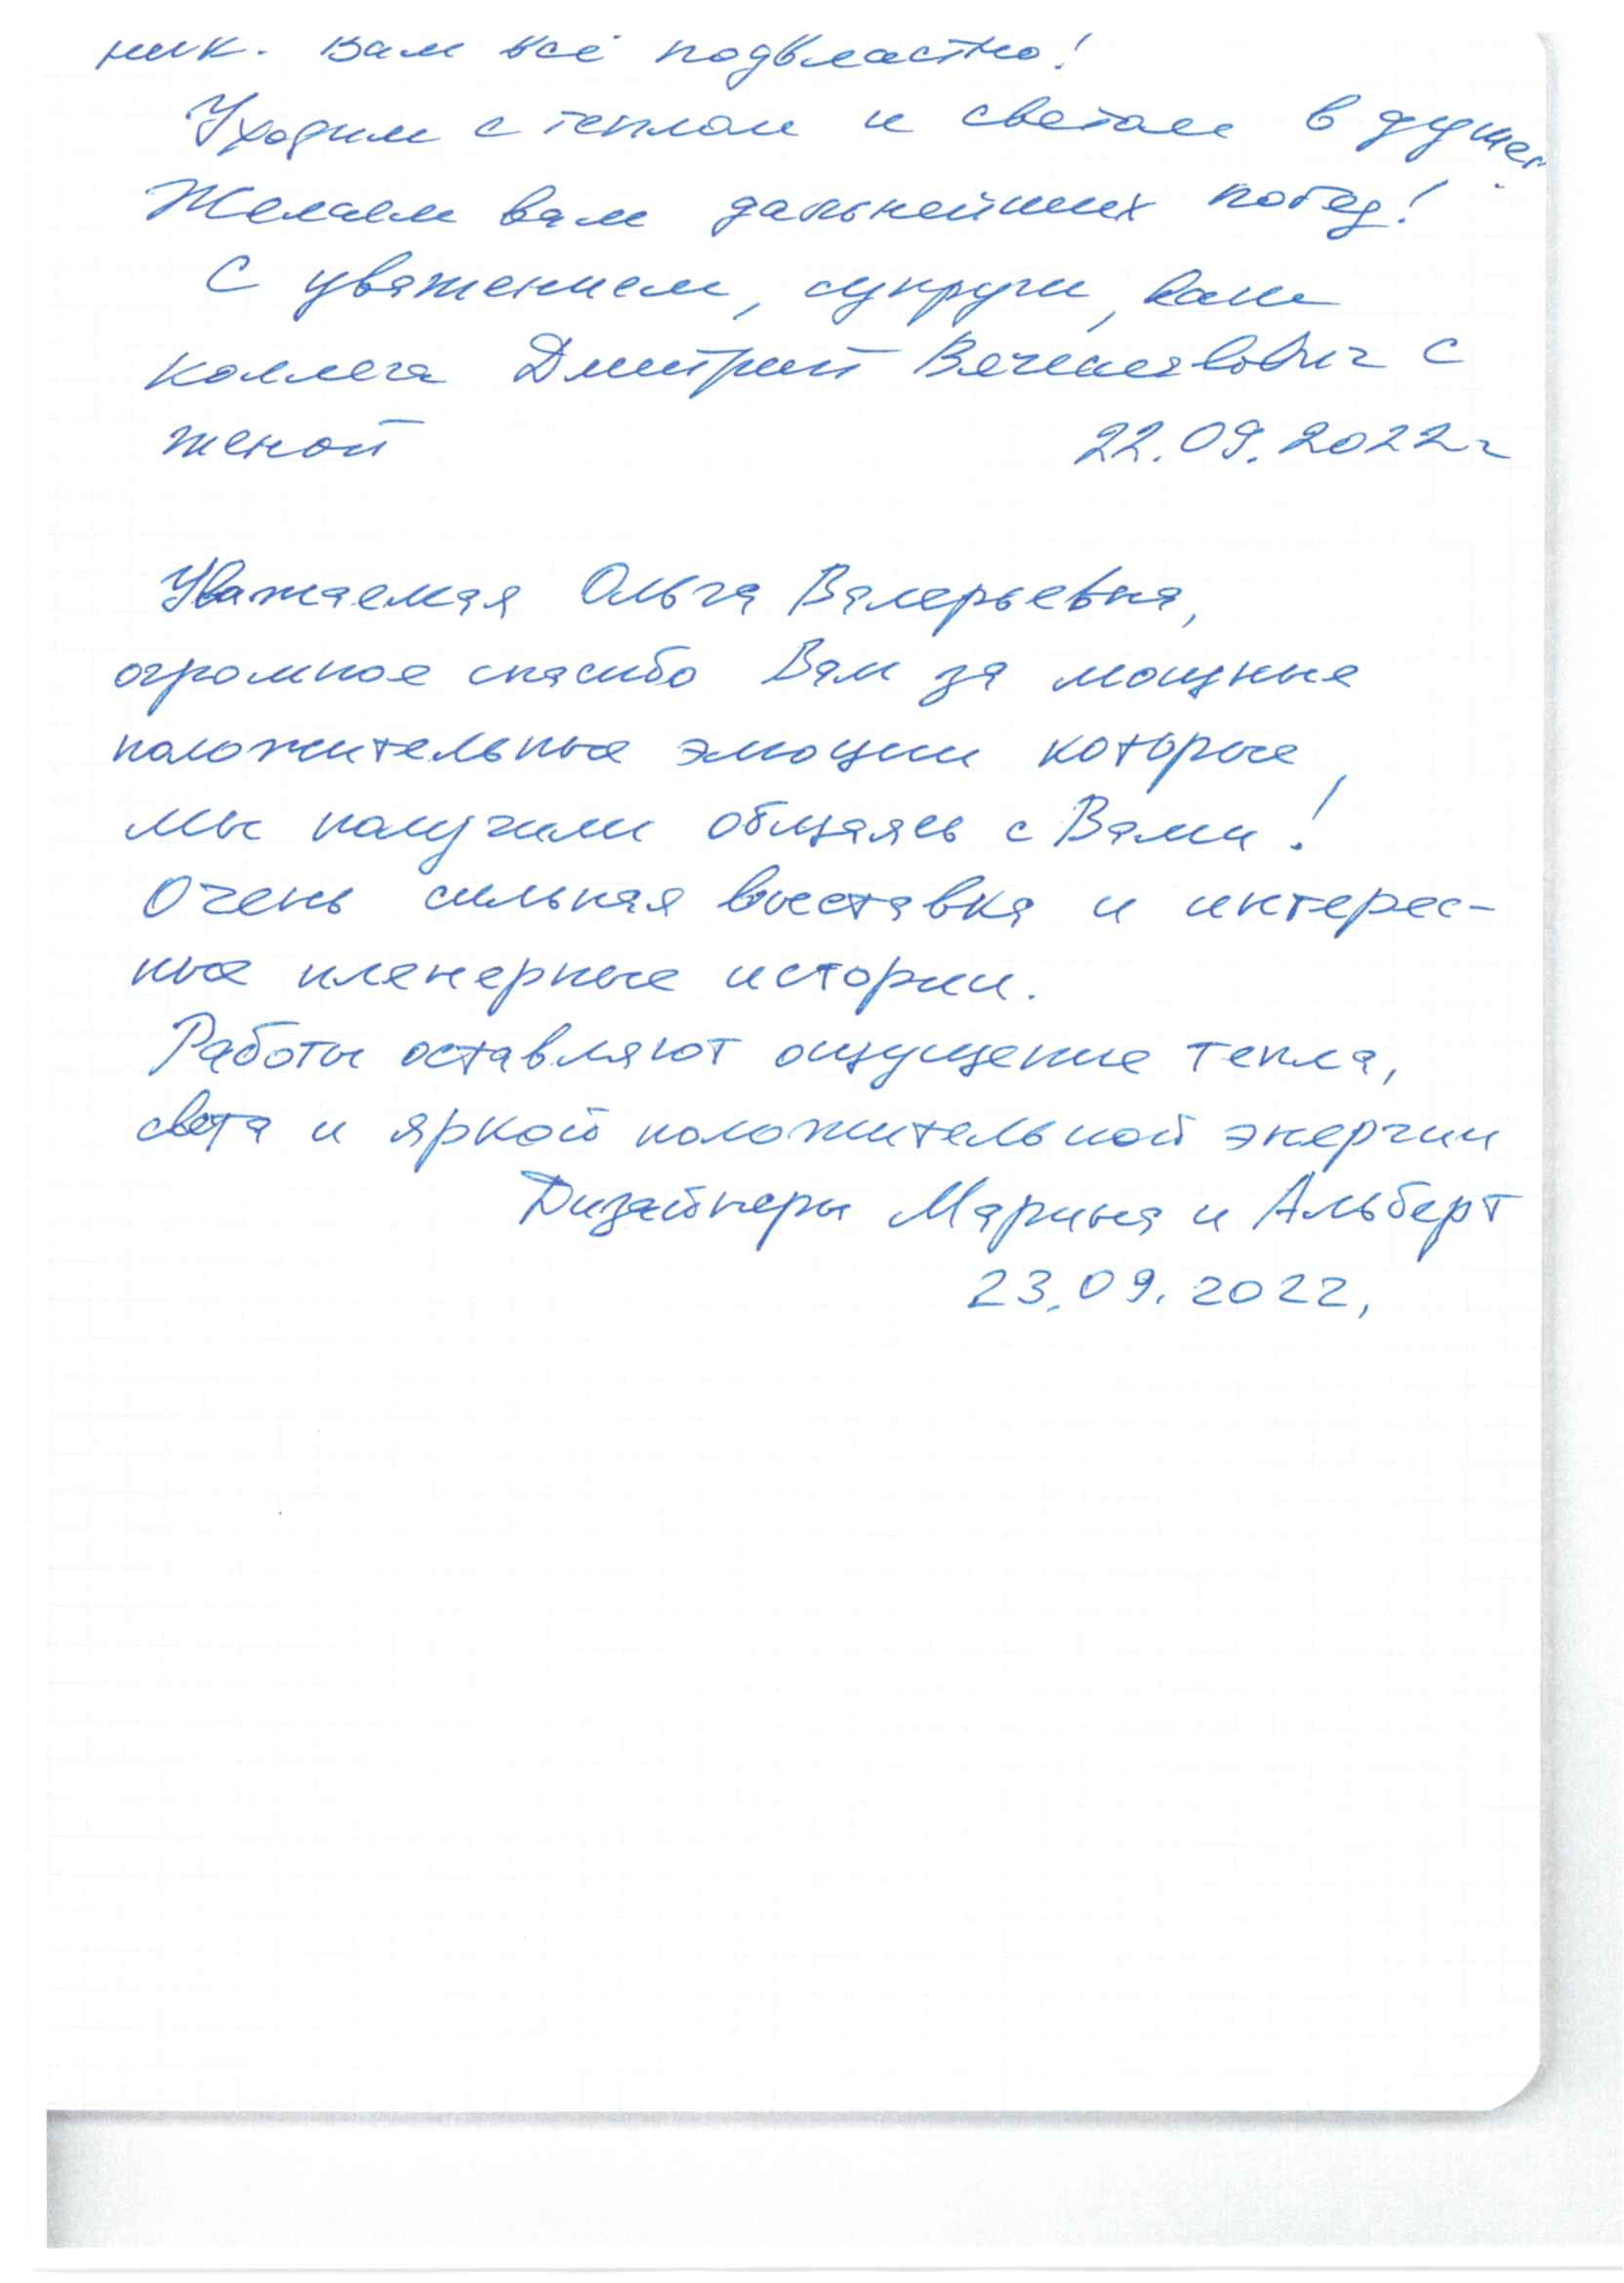 ник. Вам всё подвластно!
Уходим с теплом и светом в душе.
Желаем вам дальнейших побед!
С уважением, супруги, ваш
коллега Дмитрий Вячеславович с
женой 22.09.2022г
Уважаемая Ольга Валерьевна,
огромное спасибо Вам за мощные
положительные эмоции которые,
мы получили общаясь с Вами!
Очень сильная выставка и интерес-
ные пленерные истории.
Работы оставляют ощущение тепла,
света и яркой положительной энергии
Дизайнеры Марина и Альберт
23.09.2022,